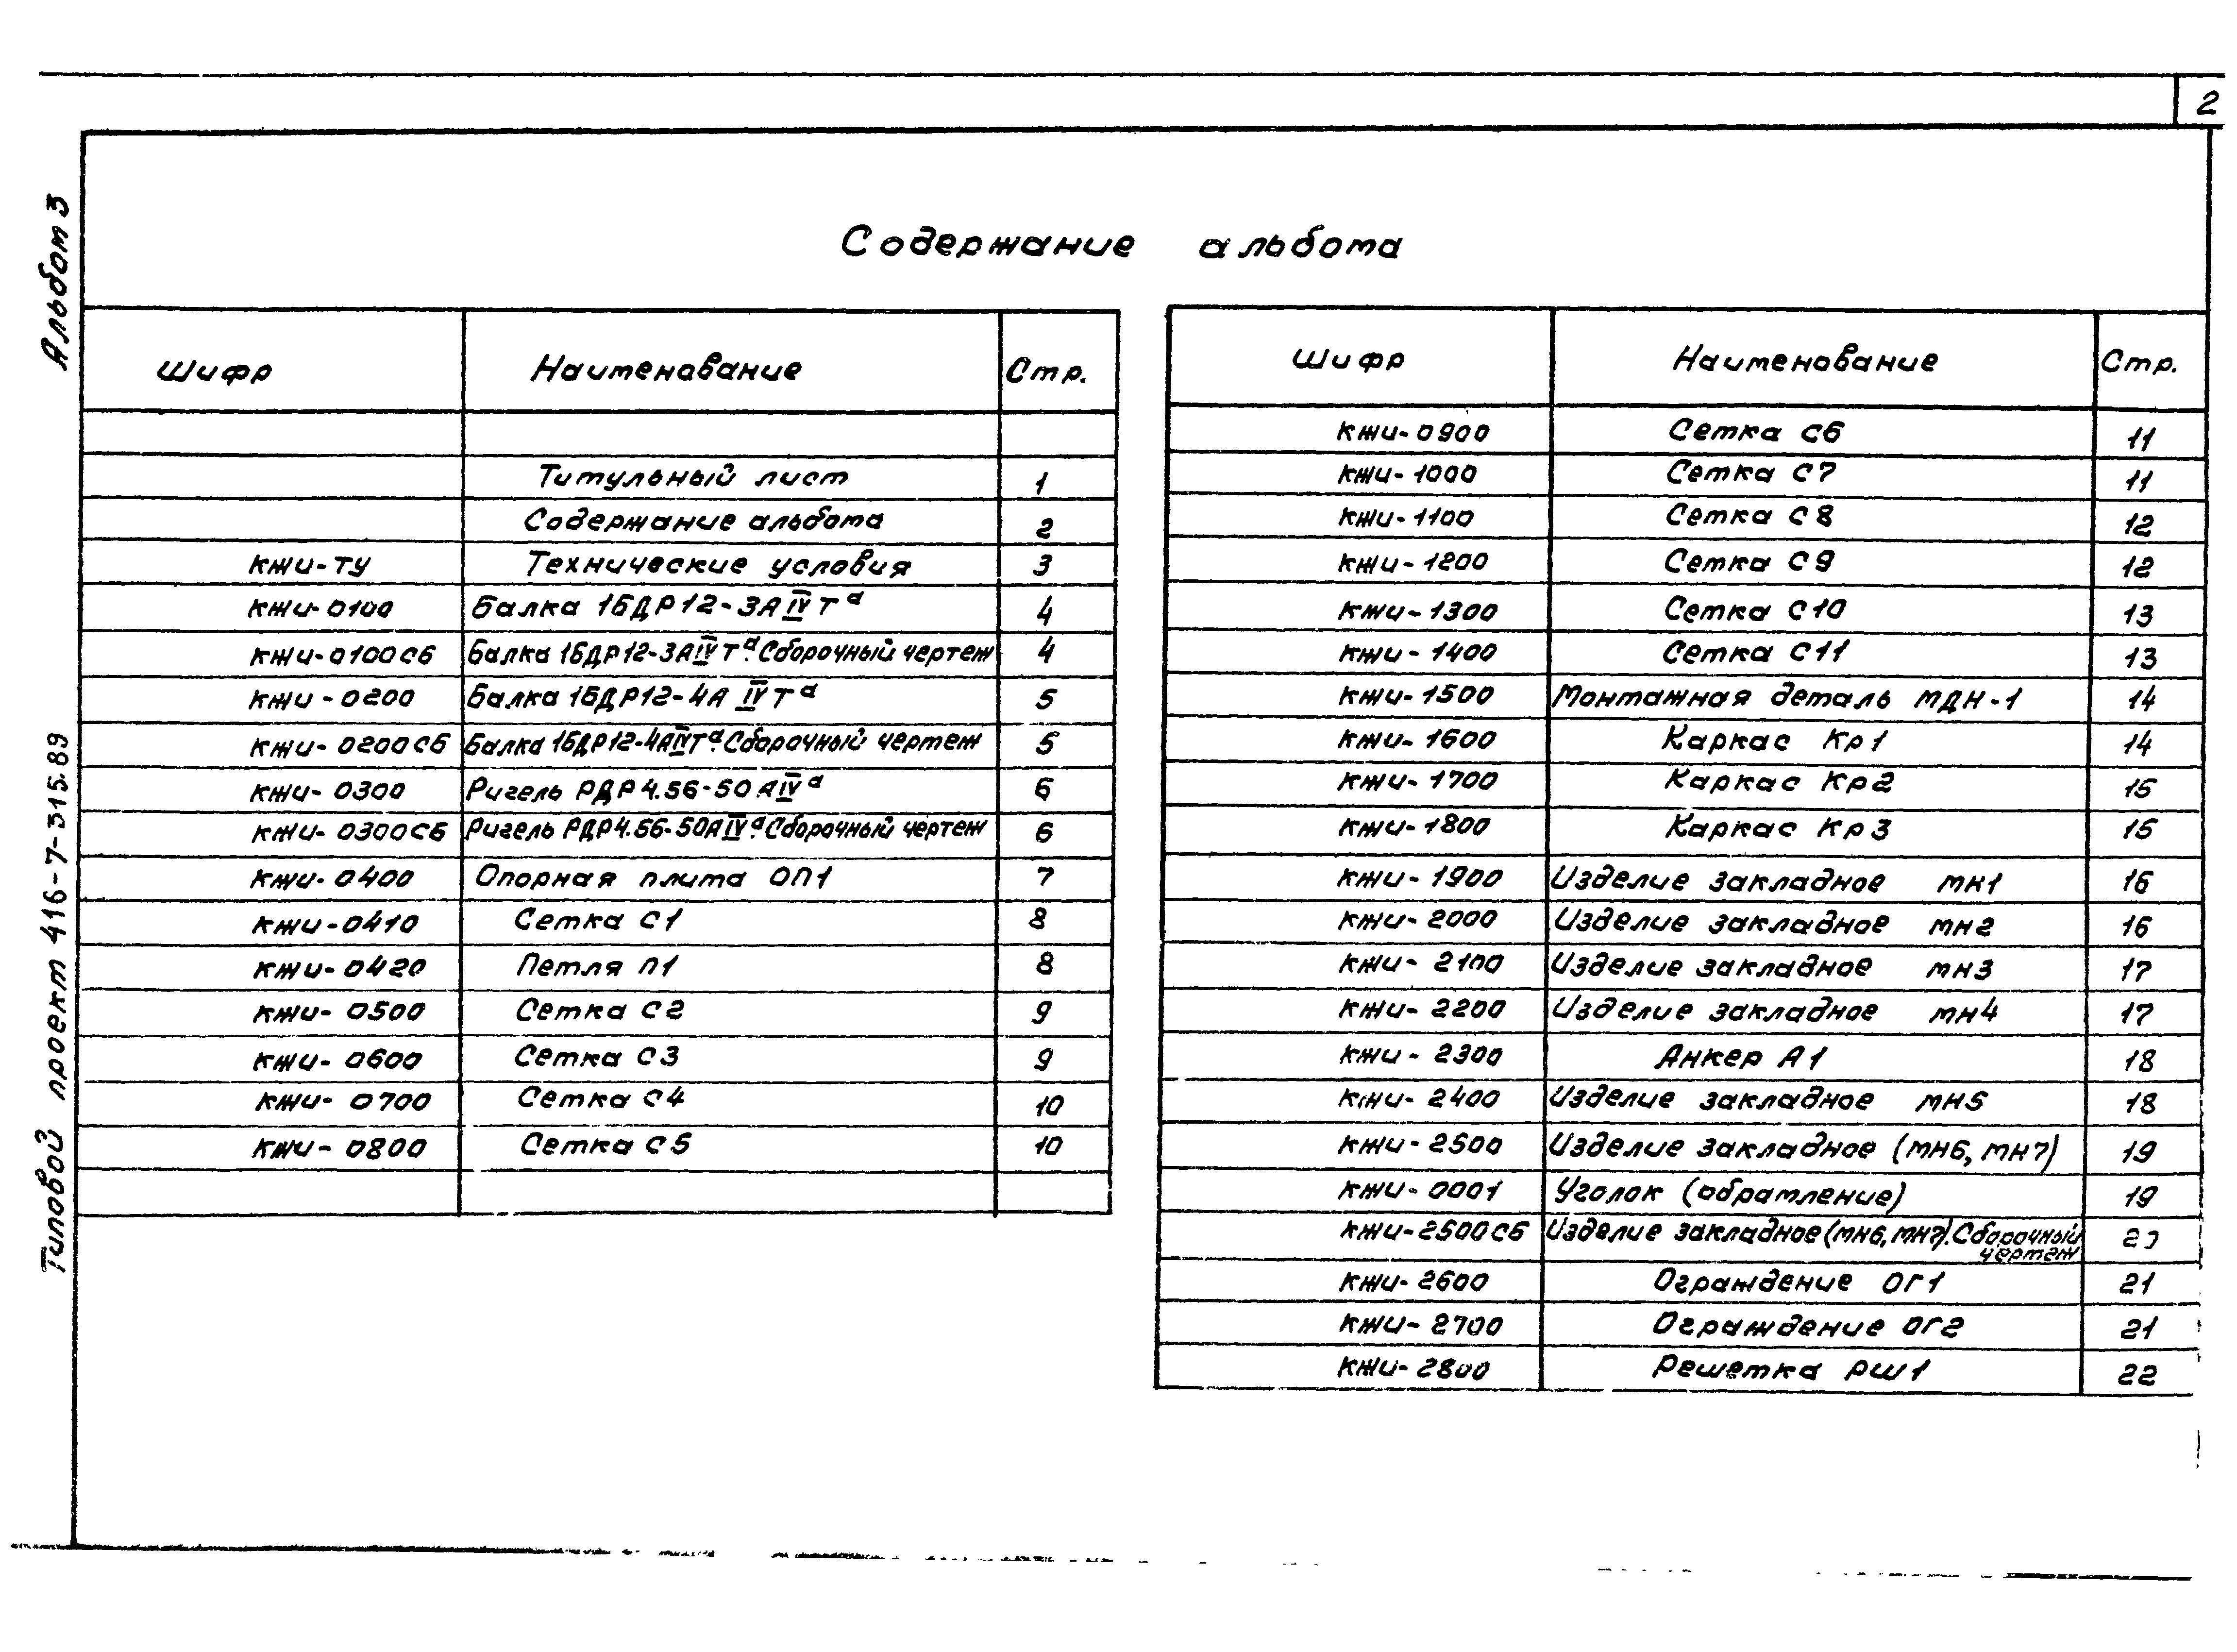 2
Альбом 3
Типовой проект 416-7-315.89
Содержание альбома
Шифр Наименование Стр.
Титульный лист 1
Содержание альбома 2
КЖИ-ТУ Технические условия 3
КЖИ-0100 Балка 1БДР12-3АIVТа 4
КЖИ-0100СБ Балка 1БДР12-3АIVТа. Сборочный чертеж 4
КЖИ-0200 Балка 1БДР12-4АIVТа 5
КЖИ-0200СБ Балка 1БДР12-4АIVТа. Сборочный чертеж 5
КЖИ-0300 Ригель РДР4.56-50АIVа 6
КЖИ-0300СБ Ригель РДР4.56-50АIVа. Сборочный чертеж 6
КЖИ-0400 Опорная плита ОП1 7
КЖИ-0410 Сетка С1 8
КЖИ-0420 Петля П1 8
КЖИ-0500 Сетка С2 9
КЖИ-0600 Сетка С3 9
КЖИ-0700 Сетка С4 10
КЖИ-0800 Сетка С5 10
Шифр Наименование Стр.
КЖИ-0900 Сетка С6 11
КЖИ-1000 Сетка С7 11
КЖИ-1100 Сетка С8 12
КЖИ-1200 Сетка С9 12
КЖИ-1300 Сетка С10 13
КЖИ-1400 Сетка С11 13
КЖИ-1500 Монтажная деталь МДН-1 14
КЖИ-1600 Каркас Кр1 14
КЖИ-1700 Каркас Кр2 15
КЖИ-1800 Каркас Кр3 15
КЖИ-1900 Изделие закладное МН1 16
КЖИ-2000 Изделие закладное МН2 16
КЖИ-2100 Изделие закладное МН3 17
КЖИ-2200 Изделие закладное МН4 17
КЖИ-2300 Анкер А1 18
КЖИ-2400 Изделие закладное МН5 18
КЖИ-2500 Изделие закладное (МН6, МН7) 19
КЖИ-0001 Уголок (обрамление) 19
КЖИ-2500СБ Изделие закладное (МН6, МН7). Сборочный 20
чертеж
КЖИ-2600 Ограждение ОГ1 21
КЖИ-2700 Ограждение ОГ2 21
КЖИ-2800 Решетка РШ1 22